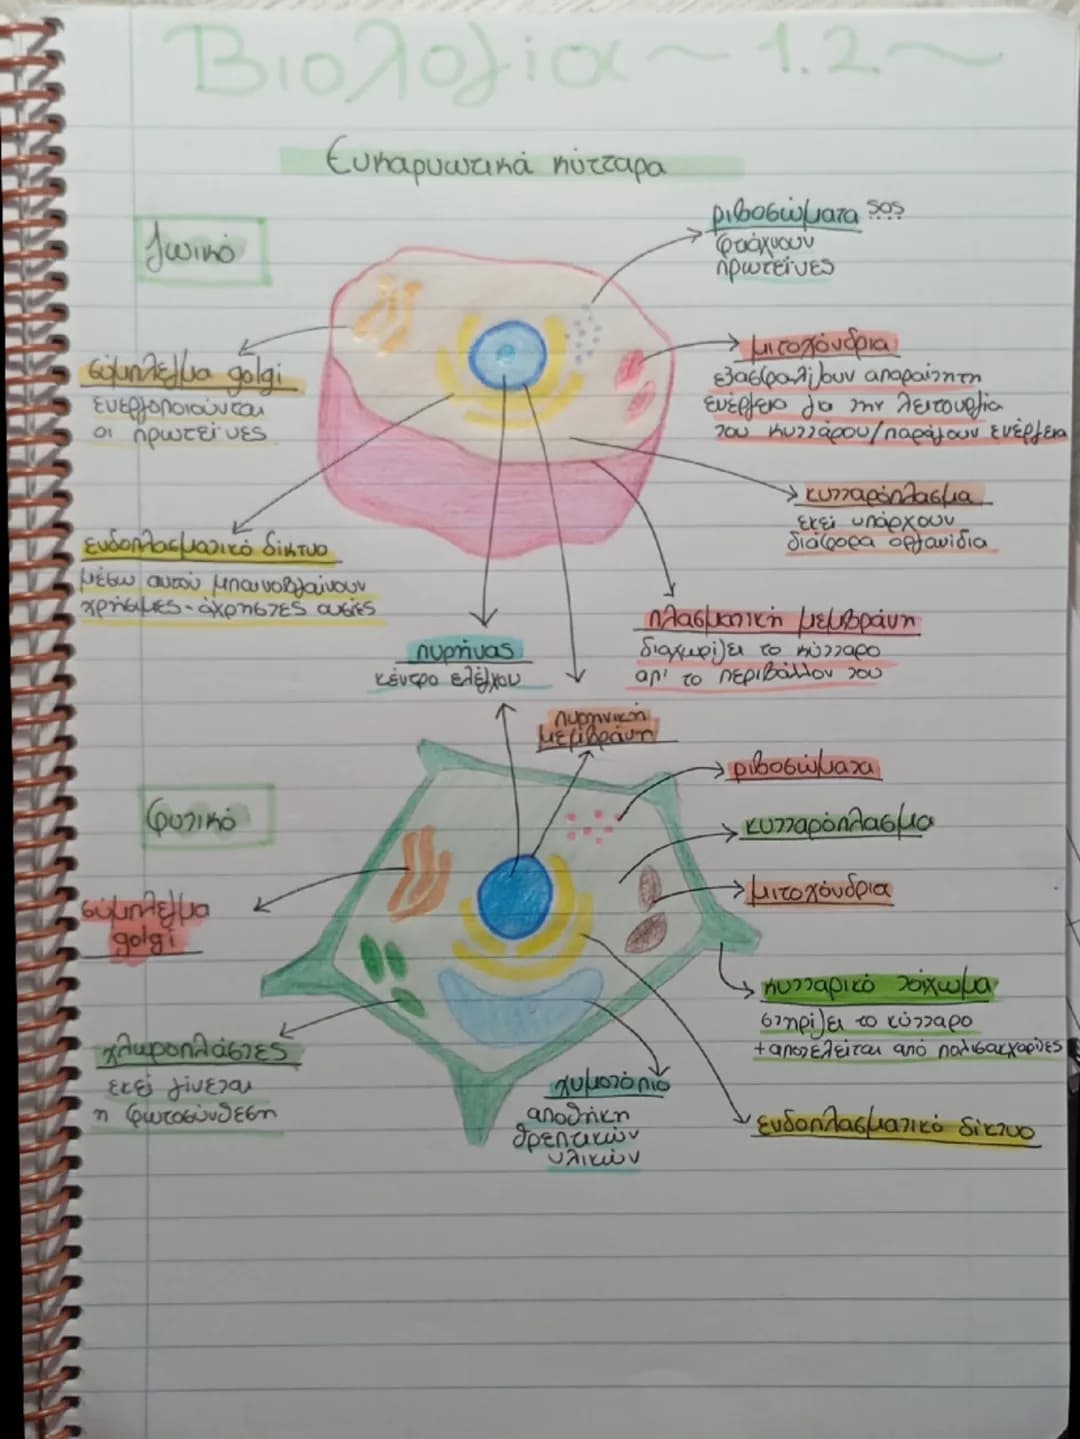 Βιολογία ~ 1.2. ~
Ευκαρυωτικά κύτταρα
ζωικό
ριβοσώματα SOS
φτιάχνουν
πρωτεΐνες
σύμπλεγμα golgi
ενεργοποιούνται
οι πρωτεΐνες
μιτοχόνδρια
εξασφαλίζουν απαραίτητη
ενέργεια για την λειτουργία
του κυττάρου/παράγουν ενέργεια
κυτταρόπλασμα
εκεί υπάρχουν
διάφορα οργανίδια
ενδοπλασματικό δίκτυο
μέσω αυτού μπαινοβγαίνουν
χρήσιμες-άχρηστες ουσίες
πυρήνας
κέντρο ελέγχου
πλασματική μεμβράνη
διαχωρίζει το κύτταρο
απ' το περιβάλλον του
πυρηνική
μεμβράνη
φυτικό
ριβοσώματα
κυτταρόπλασμα
μιτοχόνδρια
σύμπλεγμα
golgi
κυτταρικό τοίχωμα
στηρίζει το κύτταρο
+αποτελείται από πολισακχαρίτες
χλωροπλάστες
εκεί γίνεται
η φωτοσύνθεση
χυμοτόπιο
αποθήκη
θρεπτικών
υλικών
ενδοπλασματικό δίκτυο